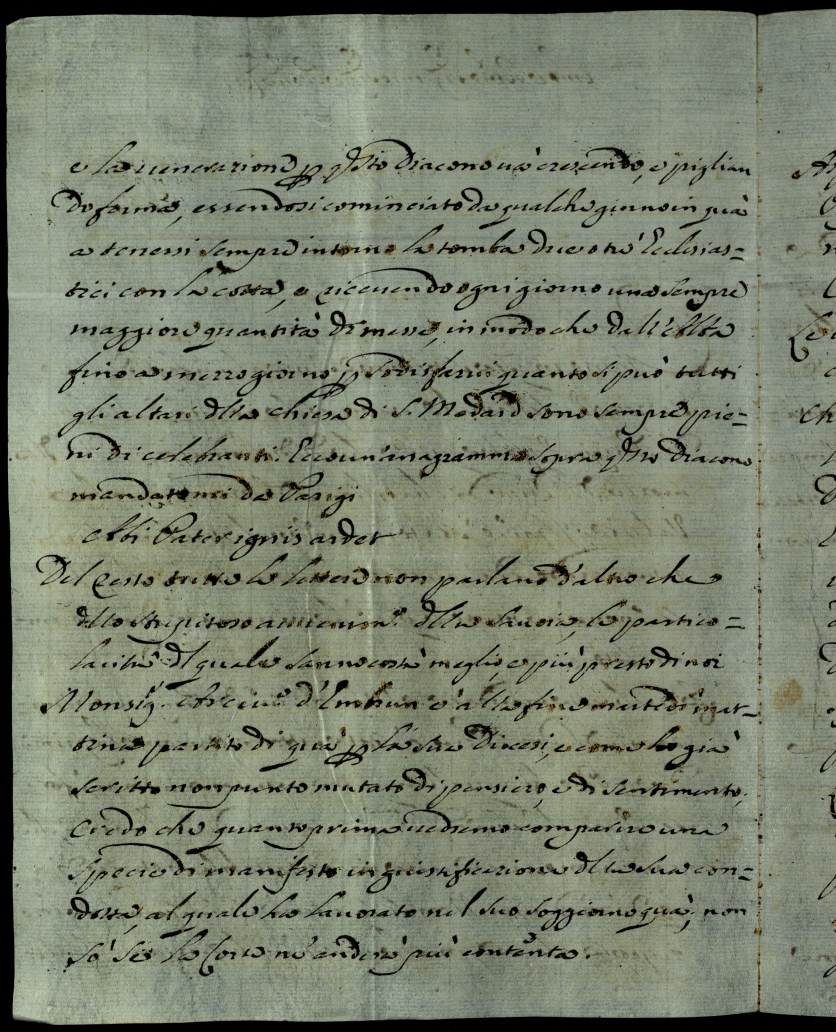 e la venerazione p q.sto Diacono và crescendo, e piglian
do forma, essendosi cominciato da qualche giorno in quà
a tenersi sempre intorno la tomba due o tre Ecclesias=
tici con la cotta, e ricevendo ogni giorno una sempre
maggiore quantità di messe, in modo che dall'Alba
fino a mezzo giorno p sodisfarvi quanto si può tutti
gli altari d.lla chiesa di S. Medard sono sempre pie=
ni di celebranti. Ecco un'anagramma sopra q.sto Diacono
mandatomi da Parigi
Abi Pater ignis ardet
Del resto tutte le lettere non parlano d'altro che
d.llo strepitoso avvenim.o d.lla Savoia, le partico=
larità d.l quale sanno costà meglio, e più presto di noi
Monsig.r Arciv.o d'Embrun è alla fine martedì mat=
tina partito di quà p la sua Diocesi, e come ho già
scritto non punto mutato di pensiero, e di sentimento,
Credo che quanto prima vedremo comparire una
specie di manifesto in giustificazione d.lla sua con=
dotta, al quale ha lavorato nel suo soggiorno quà; non
sò se la Corte ne anderà più contenta.